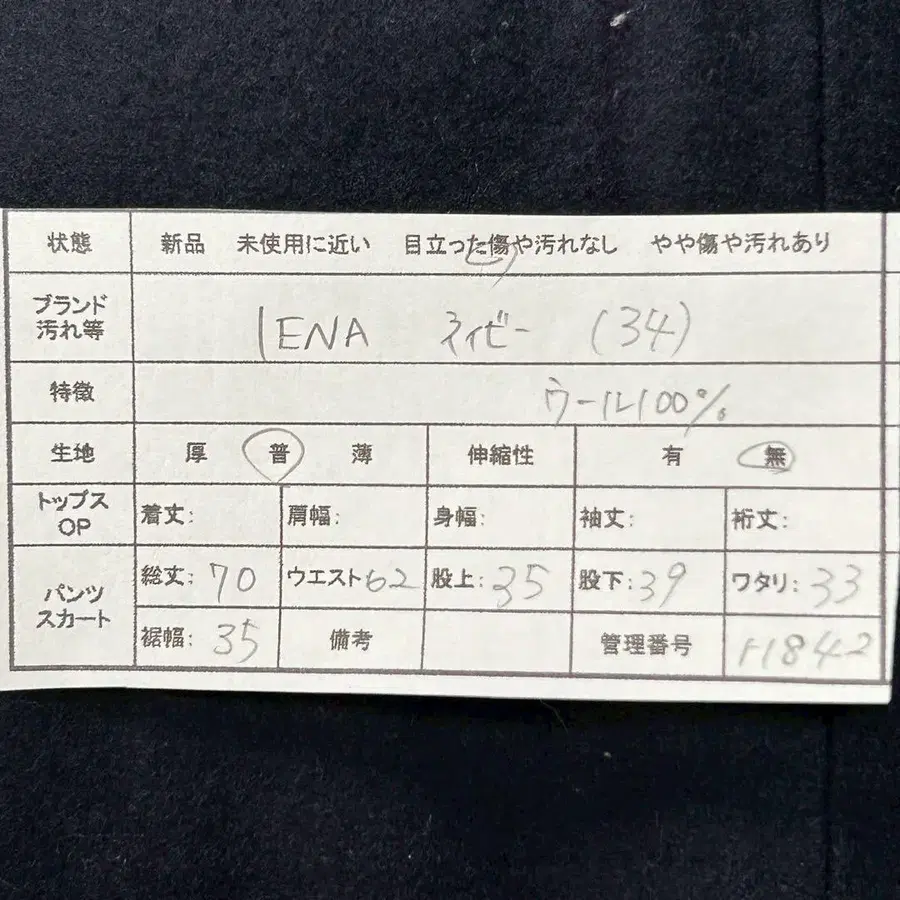 状態 新品 未使用に近い 目立った傷や汚れなし やや傷や汚れあり
ブランド
汚れ等
IENA ネイビー (34)
特徴 ウール100%
生地 厚 普 薄 伸縮性 有 無
トップス
OP
着丈: 肩幅: 身幅: 袖丈: 裄丈:
パンツ
スカート
総丈: 70 ウエスト62 股上: 35 股下: 39 ワタリ: 33
裾幅: 35 備考 管理番号 H1842